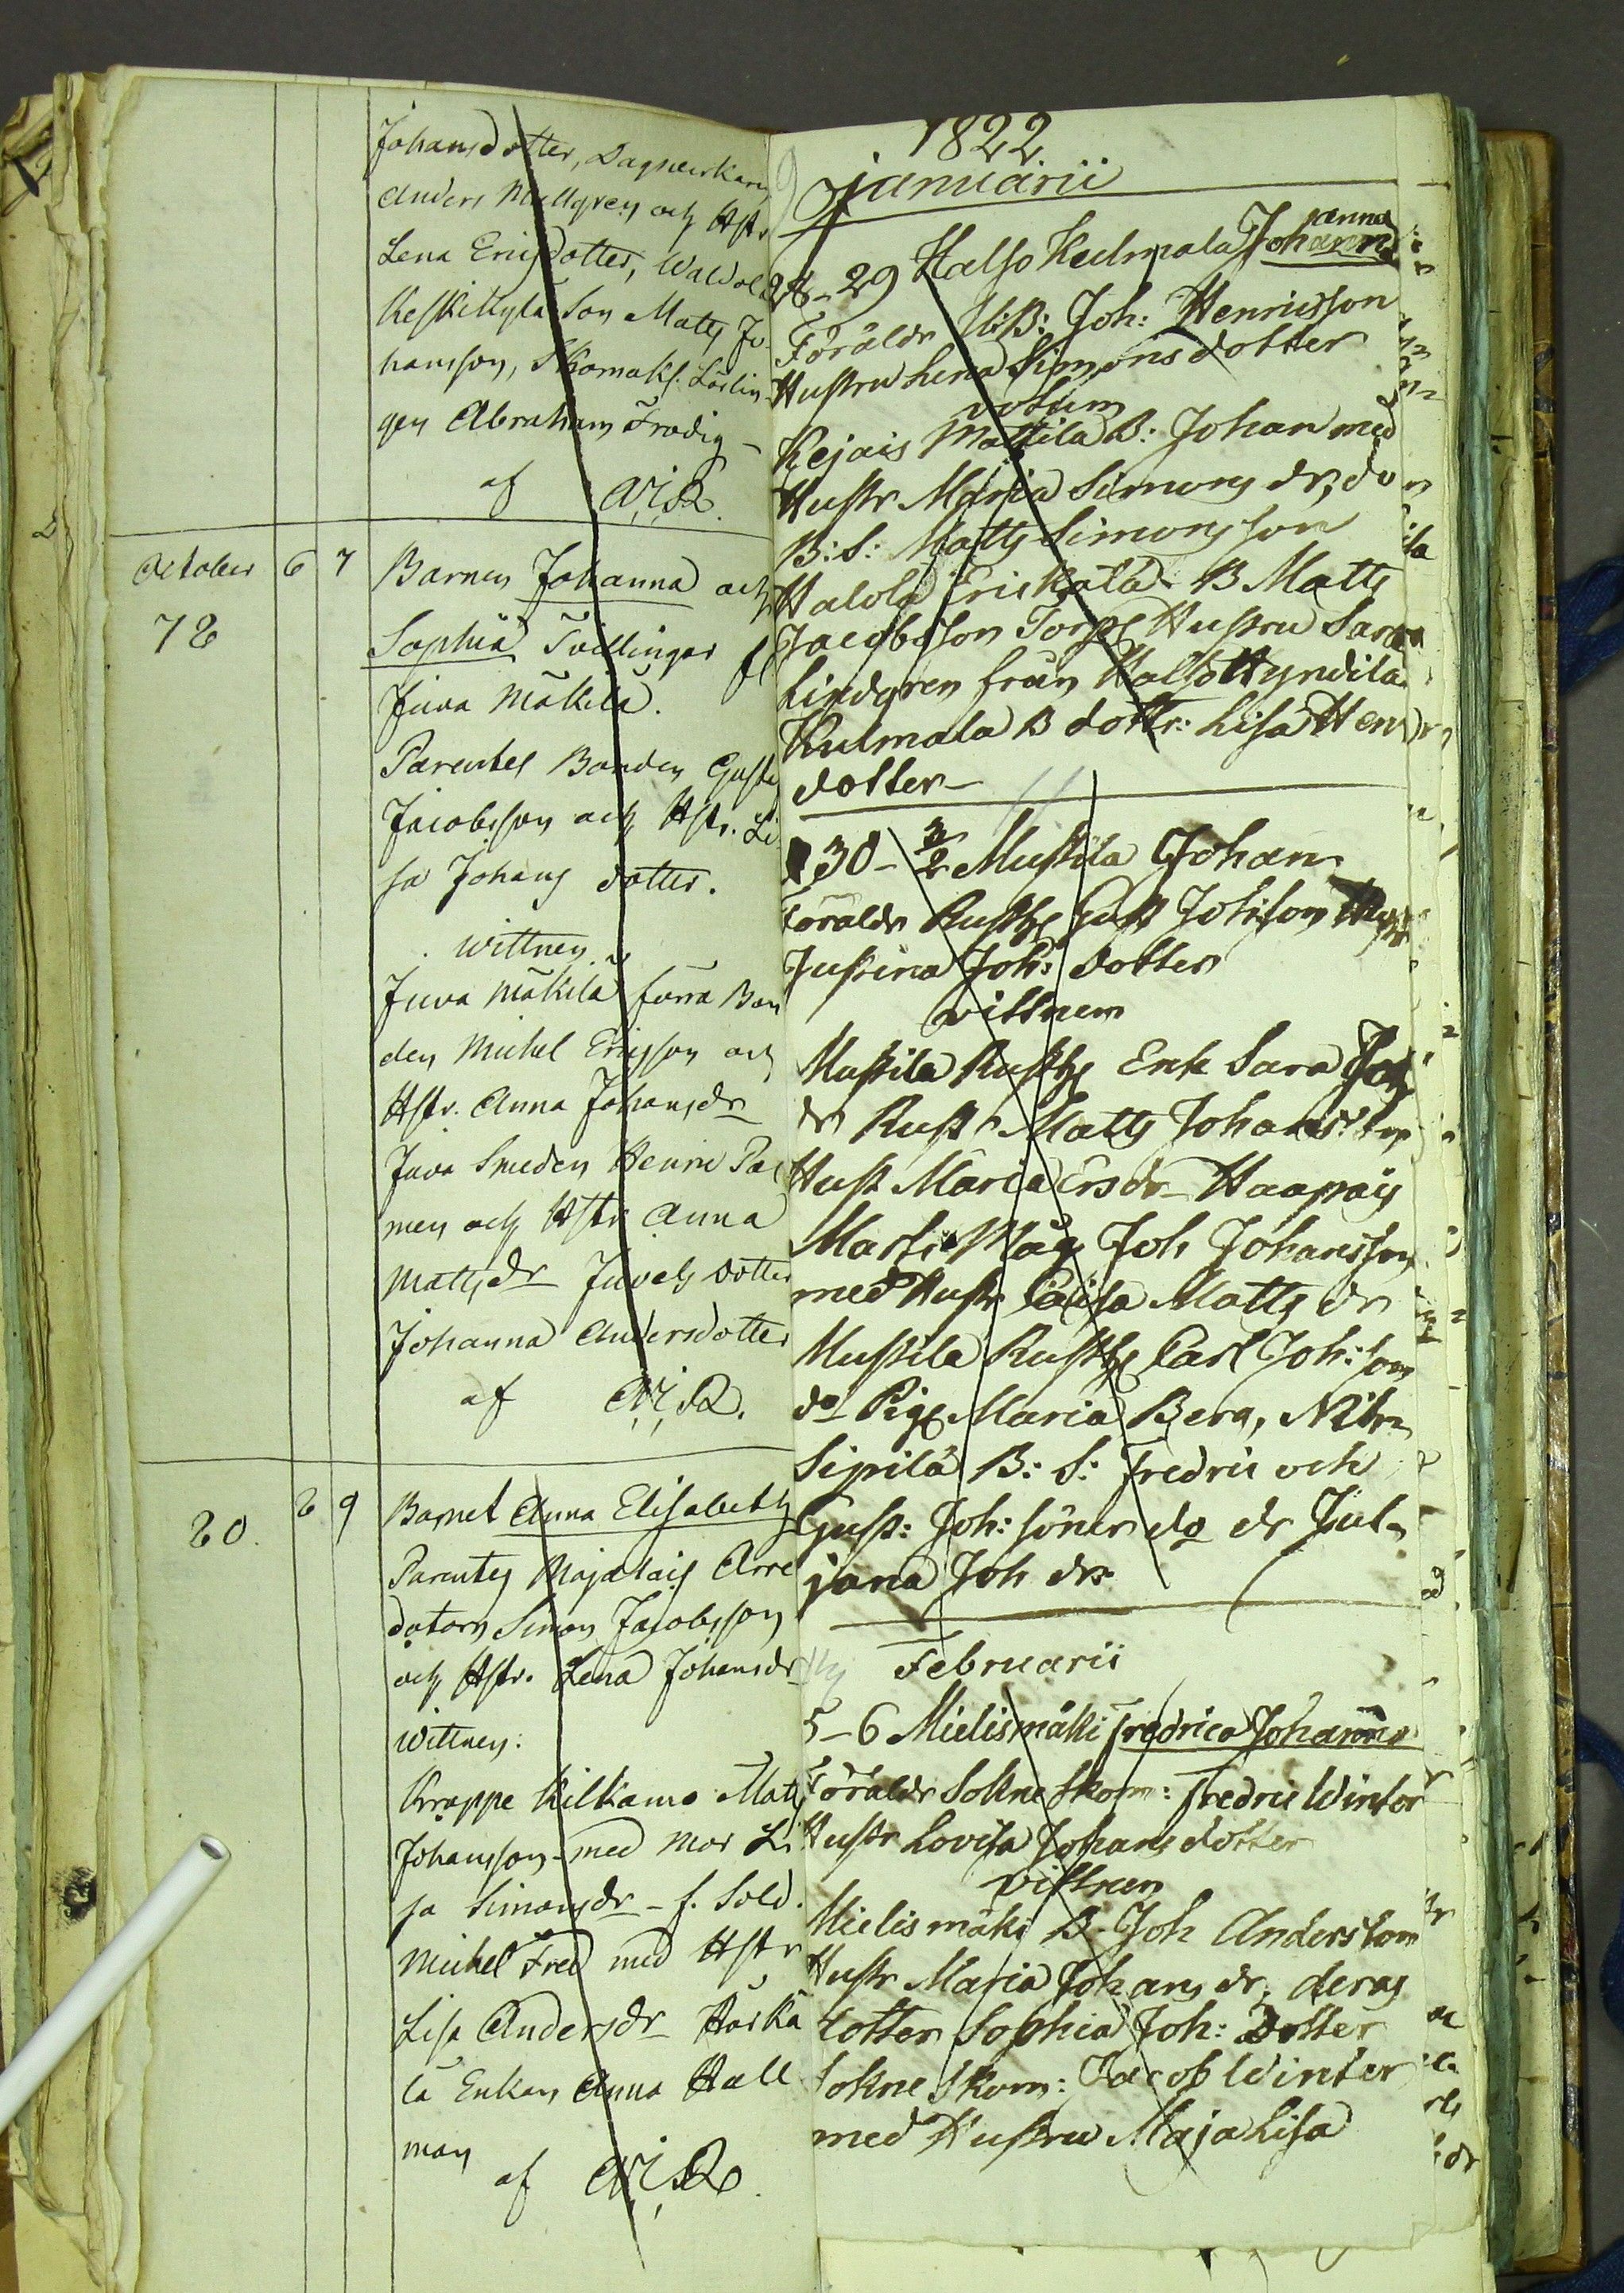 Johansdotter, Dagsverkarn
Anders Mallgren och Hstr
Lena Ericsdotter, Walvola
Keskikylä Son Matts Jo-
hansson, Skomaks. Lärlin-
gen Abraham Frodig -
af
October 6 7 Barnen Johanna och
78 Sophia Tvillingar fr
Juva Mäkilä.
Parentes Bonden Gustaf
Jacobsson och Hstr. Li
sa Johans dotter.
Wittnen
Juva Mäkilä förra Bon
den Michel Ericsson och
Hstr. Anna Johansdr
Juva Smeden Henric Pal
men och Hstr Anna
Mattsdr Juvels dotter
Johanna Andersdotter
af
80. 8 9 Barnet Anna Elisabeth
Parentes Majalais Arre
datorn Simon Jacobsson
och Hstr. Lena Johansdr
Wittnen:
Krappe Kilkamo Matts
Johansson med Mor Li
sa Simonsdr - f. Sold.
Michel Fred med Hstr
Lisa Andersdr Härkä
lä Enkan Anna Hall
man
af
1822
Januarii
28-29 Halso Kulmala Johanna
Föräldr U:B: Joh: Henricsson
Hustru Lena Simonsdotter
Kejais Mattila B: Johan med
Hustr Maria Simons dr, do
B:S: Matts Simonsson
Halola Erickala B Matts
Jacobsson Torp Hustru Sara
Lindgren från Halso Hyndilä
Kulmala B dottr: Lisa Hen
dotter -
30 - 3/2 Mustila Johan
Föräldr Rusth Gust Joh:son
Justina Joh: dotter
vittnen
Mustila Rusth Enk Sara
dr Rust Matts Johansson
Hust Maria Ersdr Haapais
Marti Måg Joh Johansson
med Hustr Caisa Matts dr
Mustila Rusth Carl Joh:son
do Pig Maria Berg,
Sipilä B: S: Fredric och
Gust: Joh: söner do dr Jul-
jana Joh dr
Februarii
5-6 Mielismäki Fredrica Johanna
Föräldr Sokne Skom: Fredric Winter
Hustr Lovisa Johans dotter
vittnen
Mielismäki B. Joh Andersson
Hustr Maria Johans dr, deras
dotter Sophia Joh: Dotter
Sokne Skom: Jacob Winter
med Hustru Maja Lisa